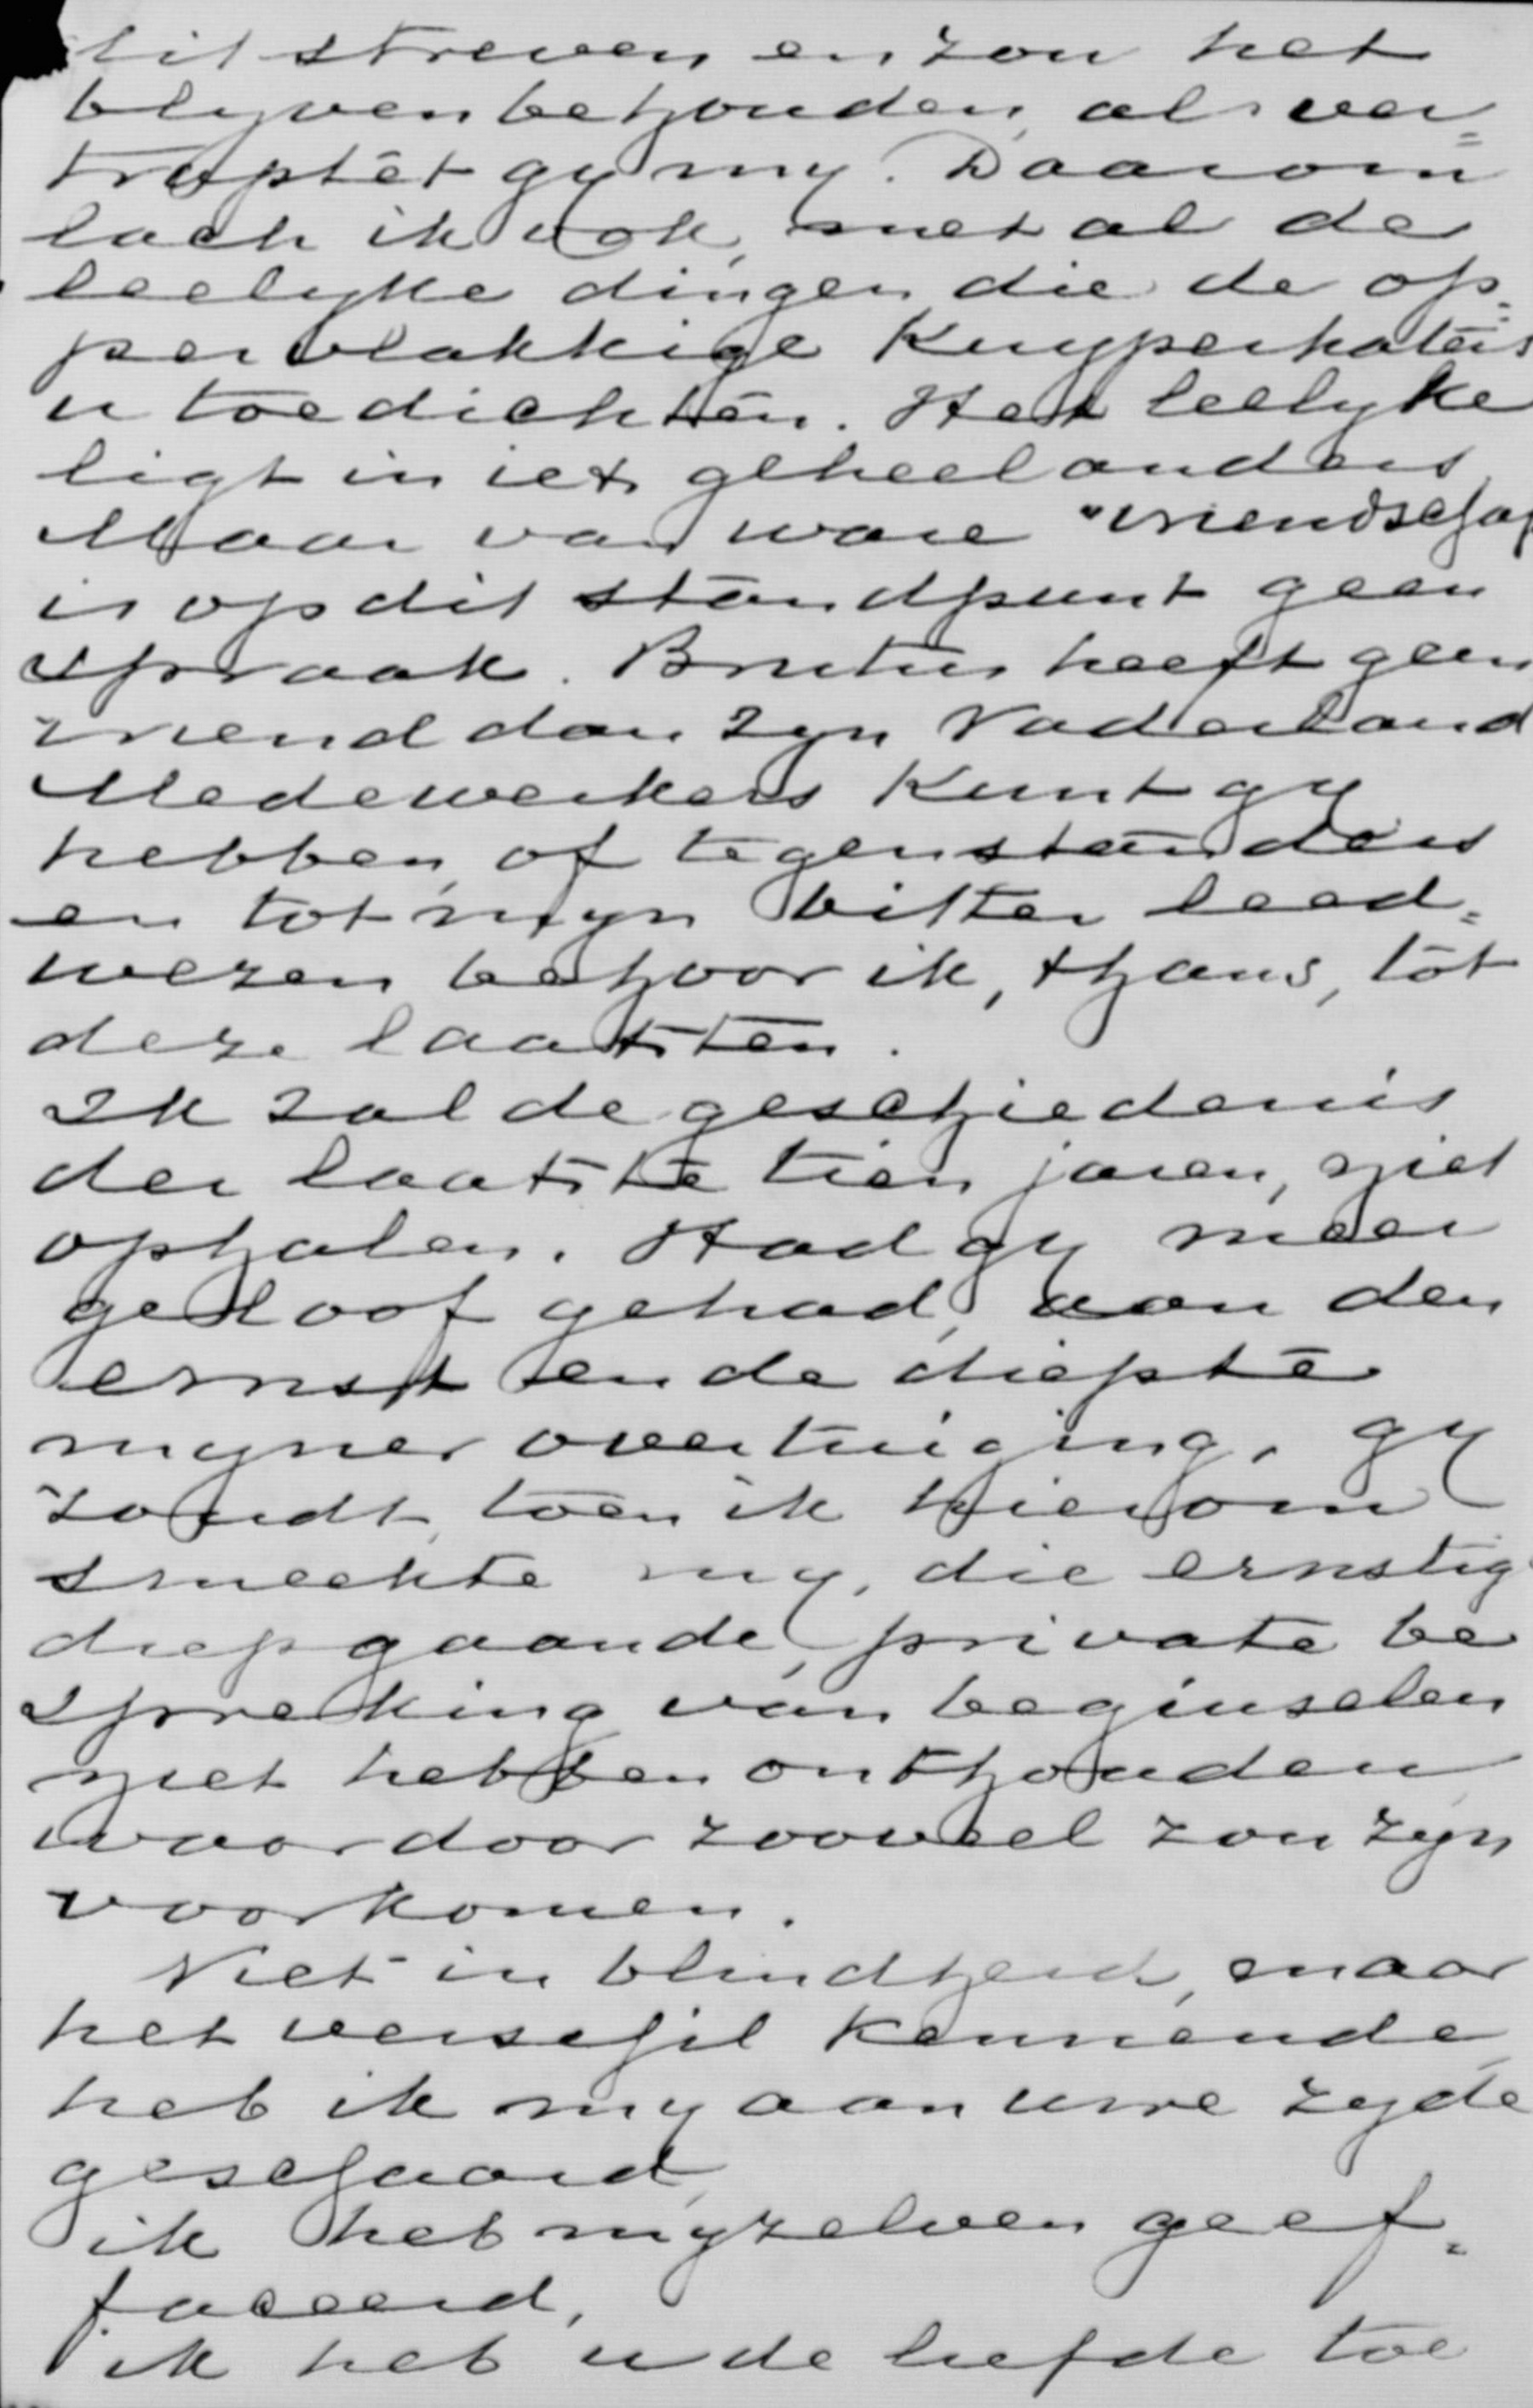 dit streven en zou het
blyven behouden, al ver=
traptet gy my. Daarom
lach ik ook, met al de
leelyke dingen die de op=
pervlakkige Kuyperhaters
u toedichten. Het leelyke
ligt in iets geheel anders
Maar van ware "vriendschap
is op dit standpunt geen
spraak. Brutus heeft geen
vriend dan zyn Vaderland
Medewerkers kunt gy
hebben, of tegenstanders
en tot myn bitter leed=
wezen behoor ik, thans, tot
deze laatsten.
Ik zal de geschiedenis
der laatste tien jaren, niet
ophalen. Had gy meer
geloof gehad, aan den
ernst en de diepte
myner overtuiging, gy
zoudt, toen ik hierom
smeekte my, die ernstig
diepgaande, private be
spreking van beginselen
niet hebben onthouden
waardoor zooveel zou zyn
voorkomen.
Niet in blindheid, maar
het verschil kennende,
heb ik my aan uwe zyde
geschaard,
ik heb myzelven geef=
faceerd,
ik heb u de liefde toe